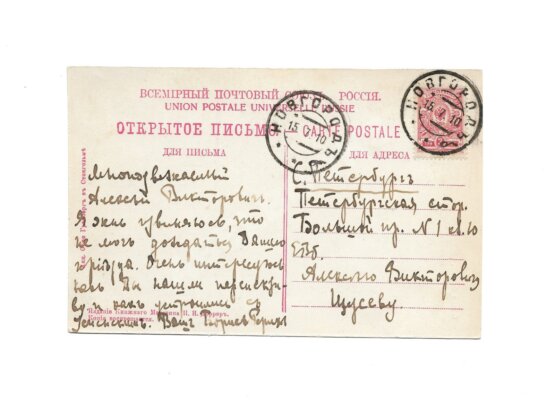 ВСЕМІРНЫЙ ПОЧТОВЫЙ РОССІЯ.
UNION POSTALE UNIVERSELLE RUSSIE
ОТКРЫТОЕ ПИСЬМО. CARTE POSTALE
ДЛЯ ПИСЬМА
ДЛЯ АДРЕСА
НОВГОРОДЪ
15 10
НОВГОРОДЪ
15 10
Многоуважаемый
Алексѣй Викторовичъ.
Я очень извиняюсь, что
не могъ дождаться Вашего
пріѣзда. Очень интересуюсь
какъ Вы нашли
и какъ устроились съ
Вашъ
С. Петербургъ
Петербургская стор.
Большой пр. N 1 кв. 10
ЕВб.
Алексѣю Викторовичу
Щусеву
Изданіе Книжнаго Магазина